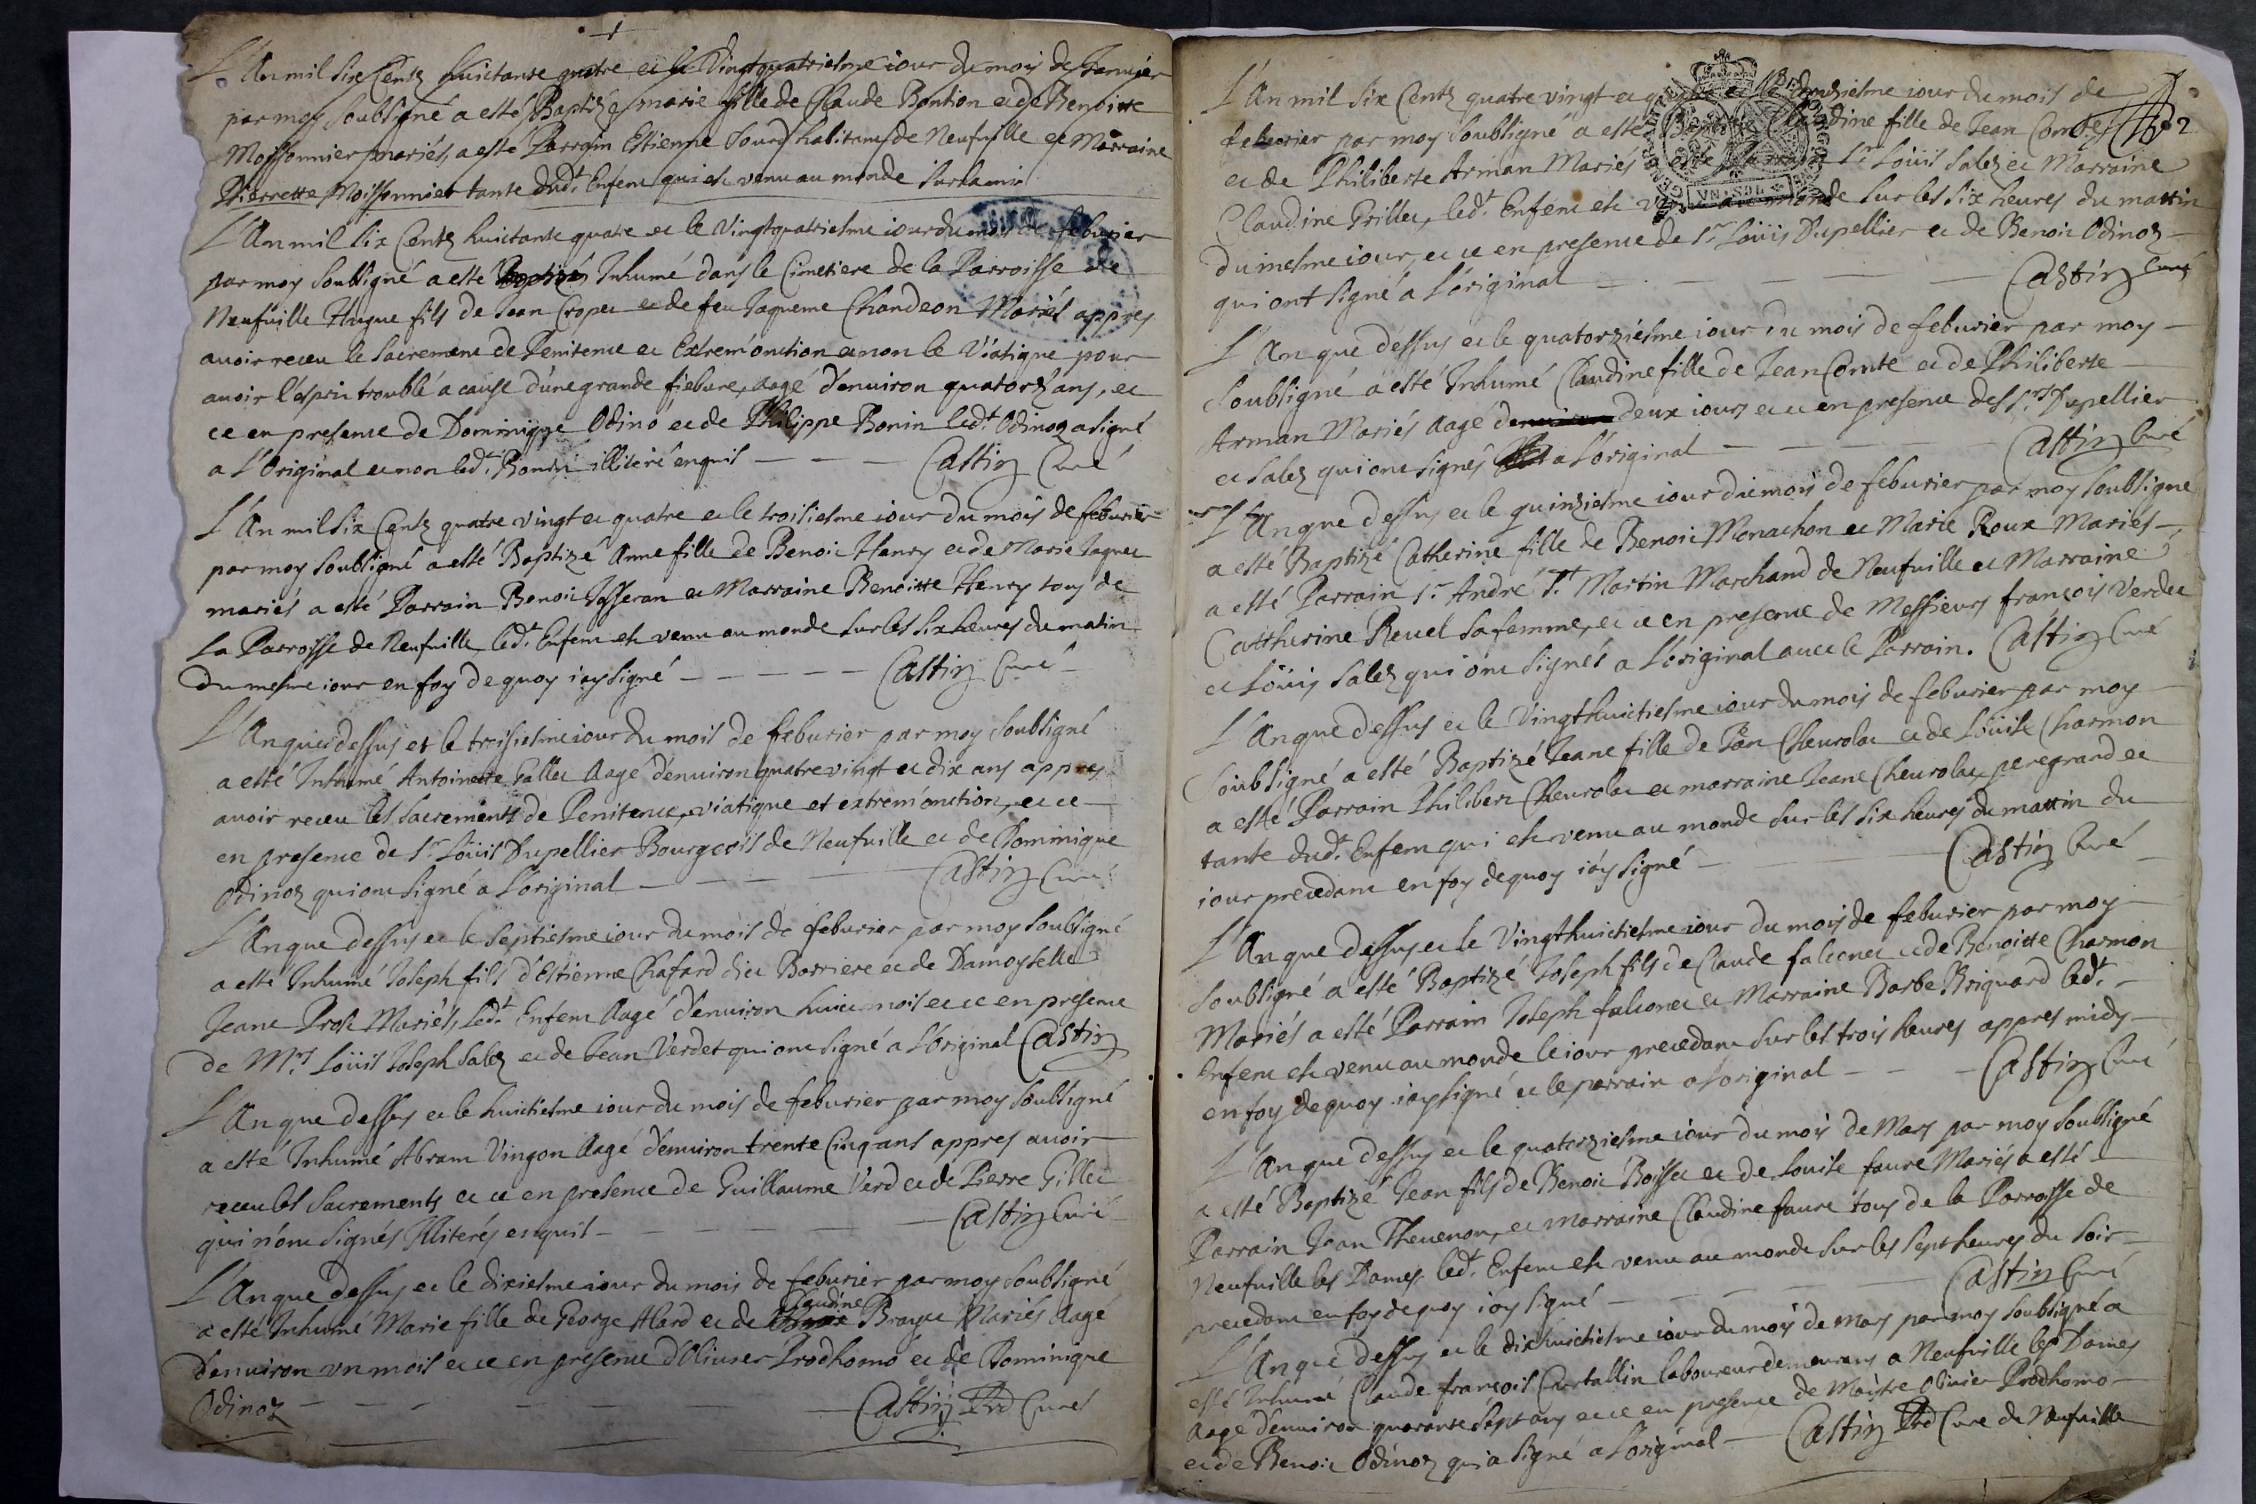 L'An mil six Cents huictante quatre et le Vingtquatriesme iour du mois de Januier
par moy soubsigné a esté Baptizé marie fille de Claude Bontion et de Benoitte
Moissonnier mariés, a esté Parrain Estienne Sourd habitant de Neufuille et Marraine
Pierrette Moissonnier tante dudt Enfent qui est venu au monde sur la
L'An mil six Cents huictante quatre et le Vingtquatriesme iour du mois de feburier
par moy soubsigné a esté Inhumé dans le Cimetiere de la Parroisse de
Neufuille Hugue fils de Jean Cropet et de feu Jaqueme Chandeon Mariés appres
auoir receu le Sacrement de Penitence et Extrem'onction et non le Viatique pour
auoir l'esprit troublé a cause d'une grande fiebure, Aagé d'enuiron quatorz'ans, et
ce en presence de Dominique Odino et de Philippe Bonin ledt Odinoz a signé
a L'Original et non ledt Bonin illiteré enquis — — — Castin Curé
L'An mil six Cents quatre vingt et quatre et le troisiesme iour du mois de feburier
par moy soubsigné a esté Baptizé Anne fille de Benoit Henry et de Marie Jaquet
mariés a esté Parrain Benoit Josseran et Marraine Benoitte Henry tous de
La Parroisse de Neufuille ledt Enfent est venu au monde sur les six heures du matin
du mesme iour en foy de quoy i'ay signé — — — — — Castin Curé
L'An que dessus et le troisiesme iour du mois de feburier par moy soubsigné
a esté Inhumé Antoinette Gallet Aagé d'enuiron quatre vingt et dix ans appres
auoir receu les Sacrements de Penitence, viatique et extrem'onction, et ce
en presence de Sr Loüis Dupellier Bourgeois de Neufuille et de Dominique
Odinoz qui ont signé a L'original — — — — Castin Curé
L'An que dessus et le septiesme iour du mois de feburier par moy soubsigné
a esté Inhumé Joseph fils d'Estienne Chafard dict Barriere et de Damoyselle
Jeane Prost Mariés, ledt Enfent Aagé d'enuiron huict mois et ce en presence
de Mrs Loüis Joseph Salez et de Jean Verdet qui ont signé a L'original Castin
L'An que dessus et le huictiesme iour du mois de feburier par moy soubsigné
a esté Inhumé Abram Vingon Aagé d'enuiron trente Cinq ans appres auoir
receu les Sacrements et ce en presence de Guillaume Verd et de Pierre Gillet
qui n'ont signés Illiterés enquis — — — — Castin Curé
L'An que dessus et le dixiesme iour du mois de feburier par moy soubsigné
a esté Inhumé Marie fille de George Alard et de Claudine Braque Mariés Aagé
d'enuiron un mois et ce en presence d'Oliuier Prodhomo et de Dominique
Odinoz — — — — — — Castin Prd Curé
L'An mil six Cents quatre vingt et quatre et le douziesme iour du mois de
feburier par moy soubsigné a esté Baptizé Claudine fille de Jean Comte 2
et de Philiberte Arman Mariés a esté Parrain Sr Loüis Salez et Marraine
Claudine Grillet, ledt Enfent est venu au monde sur les six heures du mattin
du mesme iour, et ce en presence de Sr Loüis Dupellier et de Benoit Odinoz
qui ont signé a L'original — — — — Castin Curé
L'An que dessus et le quatorziesme iour du mois de feburier par moy
soubsigné a esté Inhumé Claudine fille de Jean Comte et de Philiberte
Arman Mariés Aagé de deux iours et ce en presence des Srs Dupellier
et Salez qui ont signés a L'original — — — — Castin Curé
L'An que dessus et le quinziesme iour du mois de feburier par moy soubsigné
a esté Baptizé Catherine fille de Benoit Monachon et Marie Roux Mariés
a esté Parrain Sr André St Martin Marchand de Neufuille et Marraine
Cattherine Reuel sa femme, et ce en presence de Messieurs françois Verdet
et Loüis Salez qui ont signés a L'original auec le Parrain. Castin Curé
L'An que dessus et le Vingthuictiesme iour du mois de feburier par moy
soubsigné a esté Baptizé Jeane fille de Jean Cheurolat et de Loüise Charmon
a esté Parrain Philibert Cheurolat et marraine Jeane Cheurolat, pere grand et
tante dudt Enfent qui est venu au monde sur les six heures du mattin du
iour precedant en foy de quoy i'ay signé — — — Castin Curé
L'An que dessus et le Vingthuictiesme iour du mois de feburier par moy
soubsigné a esté Baptizé Joseph fils de Claude falconet et de Benoitte Charmon
Mariés a esté Parrain Joseph falconet et Marraine Barbe Briquard ledt
Enfent est venu au monde le iour precedant sur les trois heures appres midy
en foy de quoy i'ay signé et le parrain a L'original — — Castin Curé
L'An que dessus et le quatorziesme iour du mois de Mars par moy soubsigné
a esté Baptizé Jean fils de Benoit Boisset et de Louise faure Mariés a esté
Parrain Jean Theuenon, et marraine Claudine faure tous de la Parroisse de
Neufuille les Dames, ledt Enfent est venu au monde sur les sept heures du soir
precedant en foy de quoy i'ay signé — — — — Castin Curé
L'An que dessus et le dixhuictiesme iour du mois de mars par moy soubsigné a
esté Inhumé Claude françois Curtallin laboureur demeurans a Neufuille les Dames
Aagé d'enuiron quarante sept ans et ce en presence de Maistre Oliuier Prodhomo
et de Benoit Odinoz qui a signé a L'original — Castin Prd Curé de Neufuille